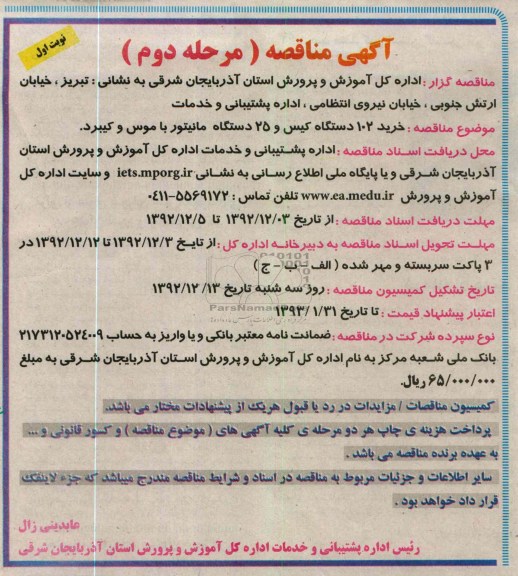 نوبت اول
آگهی مناقصه ( مرحله دوم )
مناقصه گزار : اداره کل آموزش و پرورش استان آذربایجان شرقی به نشانی : تبریز ، خیابان
ارتش جنوبی ، خیابان نیروی انتظامی ، اداره پشتیبانی و خدمات
موضوع مناقصه : خرید ۱۰۲ دستگاه کیس و ۲۵ دستگاه مانیتور با موس و کیبرد.
محل دریافت اسناد مناقصه : اداره پشتیبانی و خدمات اداره کل آموزش و پرورش استان
آذربایجان شرقی و یا پایگاه ملی اطلاع رسانی به نشانی iets.mporg.ir و سایت اداره کل
آموزش و پرورش www.ea.medu.ir تلفن تماس : ۵۵۶۹۱۷۲-۰۴۱۱
مهلت دریافت اسناد مناقصه : از تاریخ ۱۳۹۲/۱۲/۰۳ تا ۱۳۹۲/۱۲/۵
مهلت تحویل اسناد مناقصه به دبیرخانه اداره کل : از تایخ ۱۳۹۲/۱۲/۳ تا ۱۳۹۲/۱۲/۱۲ در
۳ پاکت سربسته و مهر شده ( الف - ب - ج )
تاریخ تشکیل کمیسیون مناقصه : روز سه شنبه تاریخ ۱۳۹۲/۱۲/۱۳
اعتبار پیشنهاد قیمت : تا تاریخ ۱۳۹۳/۱/۳۱
نوع سپرده شرکت در مناقصه : ضمانت نامه معتبر بانکی و یا واریز به حساب ۲۱۷۳۱۲۰۵۲۴۰۰۹
بانک ملی شعبه مرکز به نام اداره کل آموزش و پرورش استان آذربایجان شرقی به مبلغ
۶۵/۰۰۰/۰۰۰ ریال.
کمیسیون مناقصات / مزایدات در رد یا قبول هریک از پیشنهادات مختار می باشد.
پرداخت هزینه ی چاپ هر دو مرحله ی کلیه آگهی های ( موضوع مناقصه ) و کسور قانونی و ...
به عهده برنده مناقصه می باشد .
سایر اطلاعات و جزئیات مربوط به مناقصه در اسناد و شرایط مناقصه مندرج میباشد که جزء لاینفک
قرار داد خواهد بود .
عابدینی زال
رئیس اداره پشتیبانی و خدمات اداره کل آموزش و پرورش استان آذربایجان شرقی